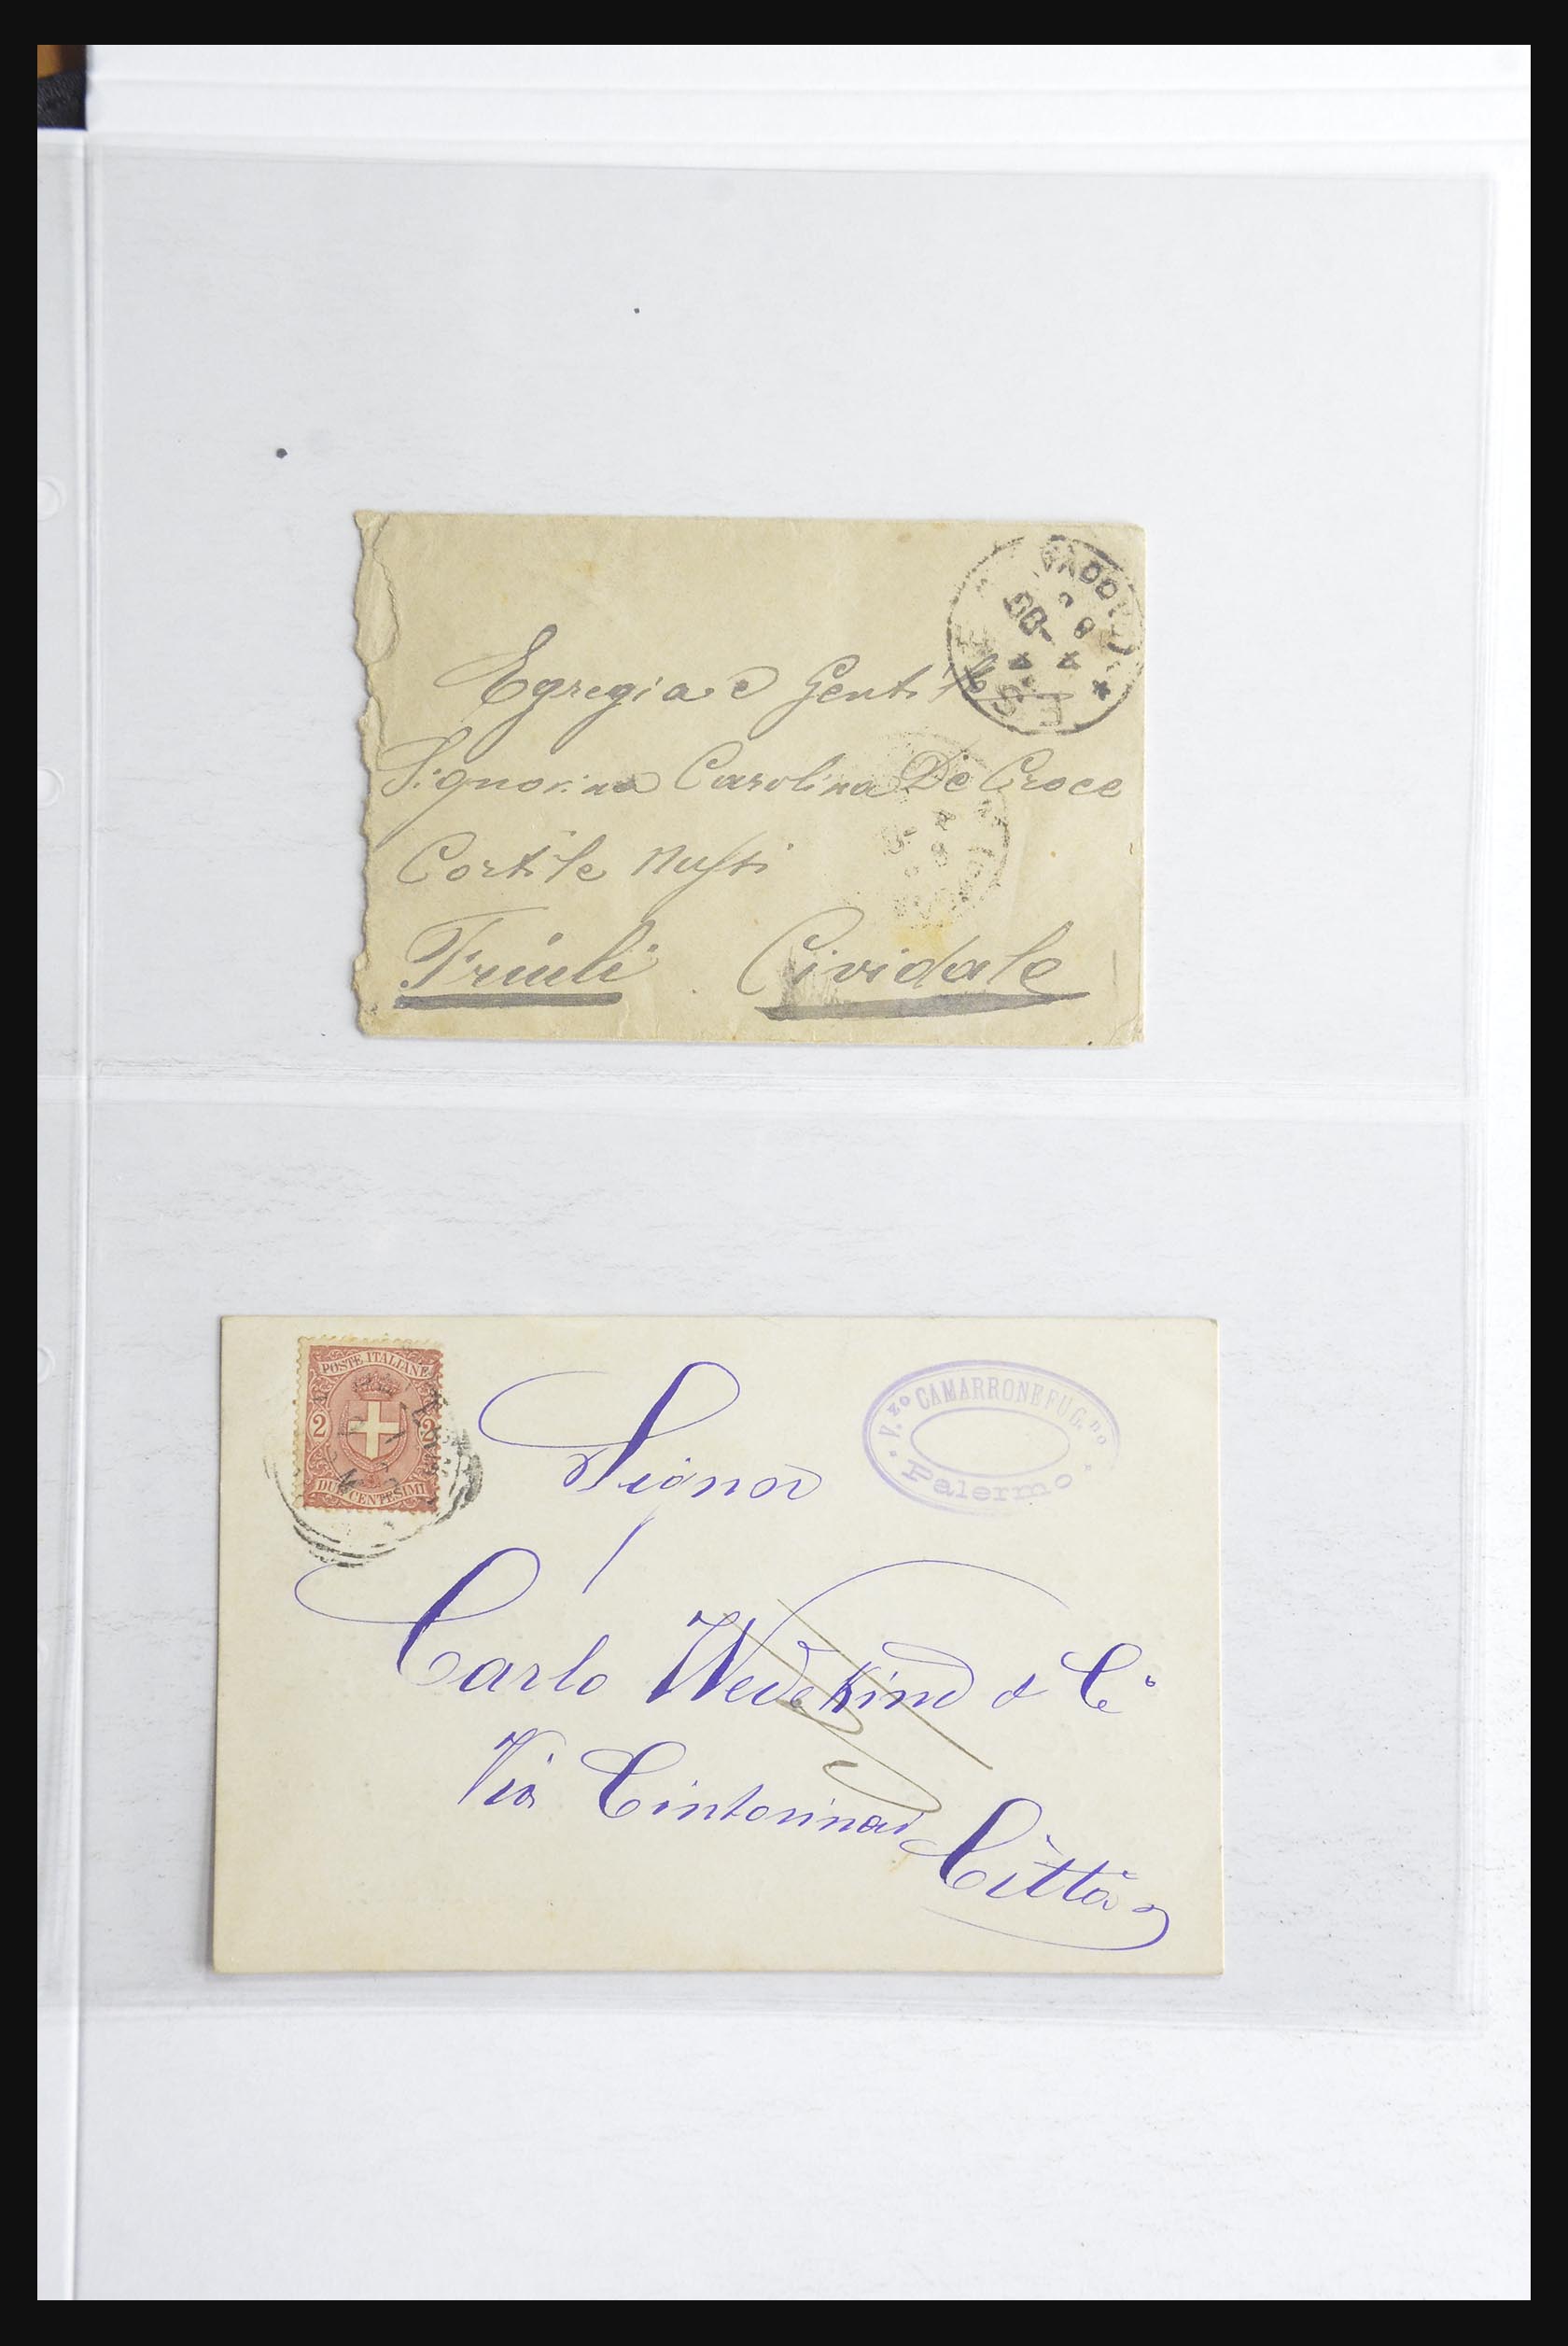 PADOVA
ESTE
Egregia e Gentile
Signorina Carolina De Croce
Cortile Nussi
Friuli Cividale
POSTE ITALIANE
2 2
DUE CENTESIMI
V.ZO CAMARRONE FU G.DO
Palermo
Signor
Carlo Wedekind & C°
Via Cintorinai
Città